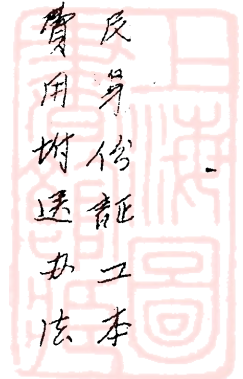 民身份証工本
費用坿送办法